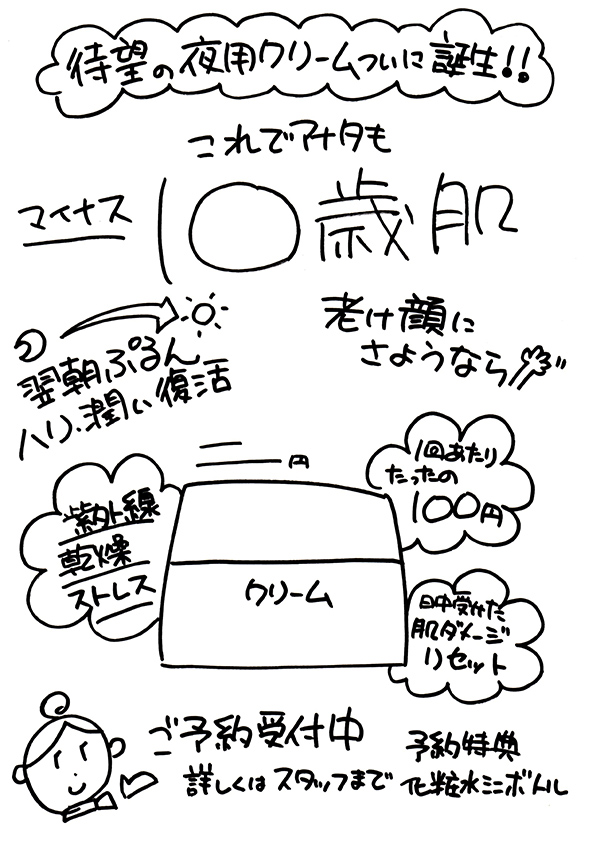 待望の夜用クリームついに誕生!!
これでアナタも
マイナス10歳肌
翌朝ぷるん
ハリ・潤い復活
老け顔に
さようなら
円
1回あたり
たったの
100円
紫外線
乾燥
ストレス
クリーム
日中受けた
肌ダメージ
リセット
ご予約受付中
詳しくはスタッフまで
予約特典
化粧水ミニボトル